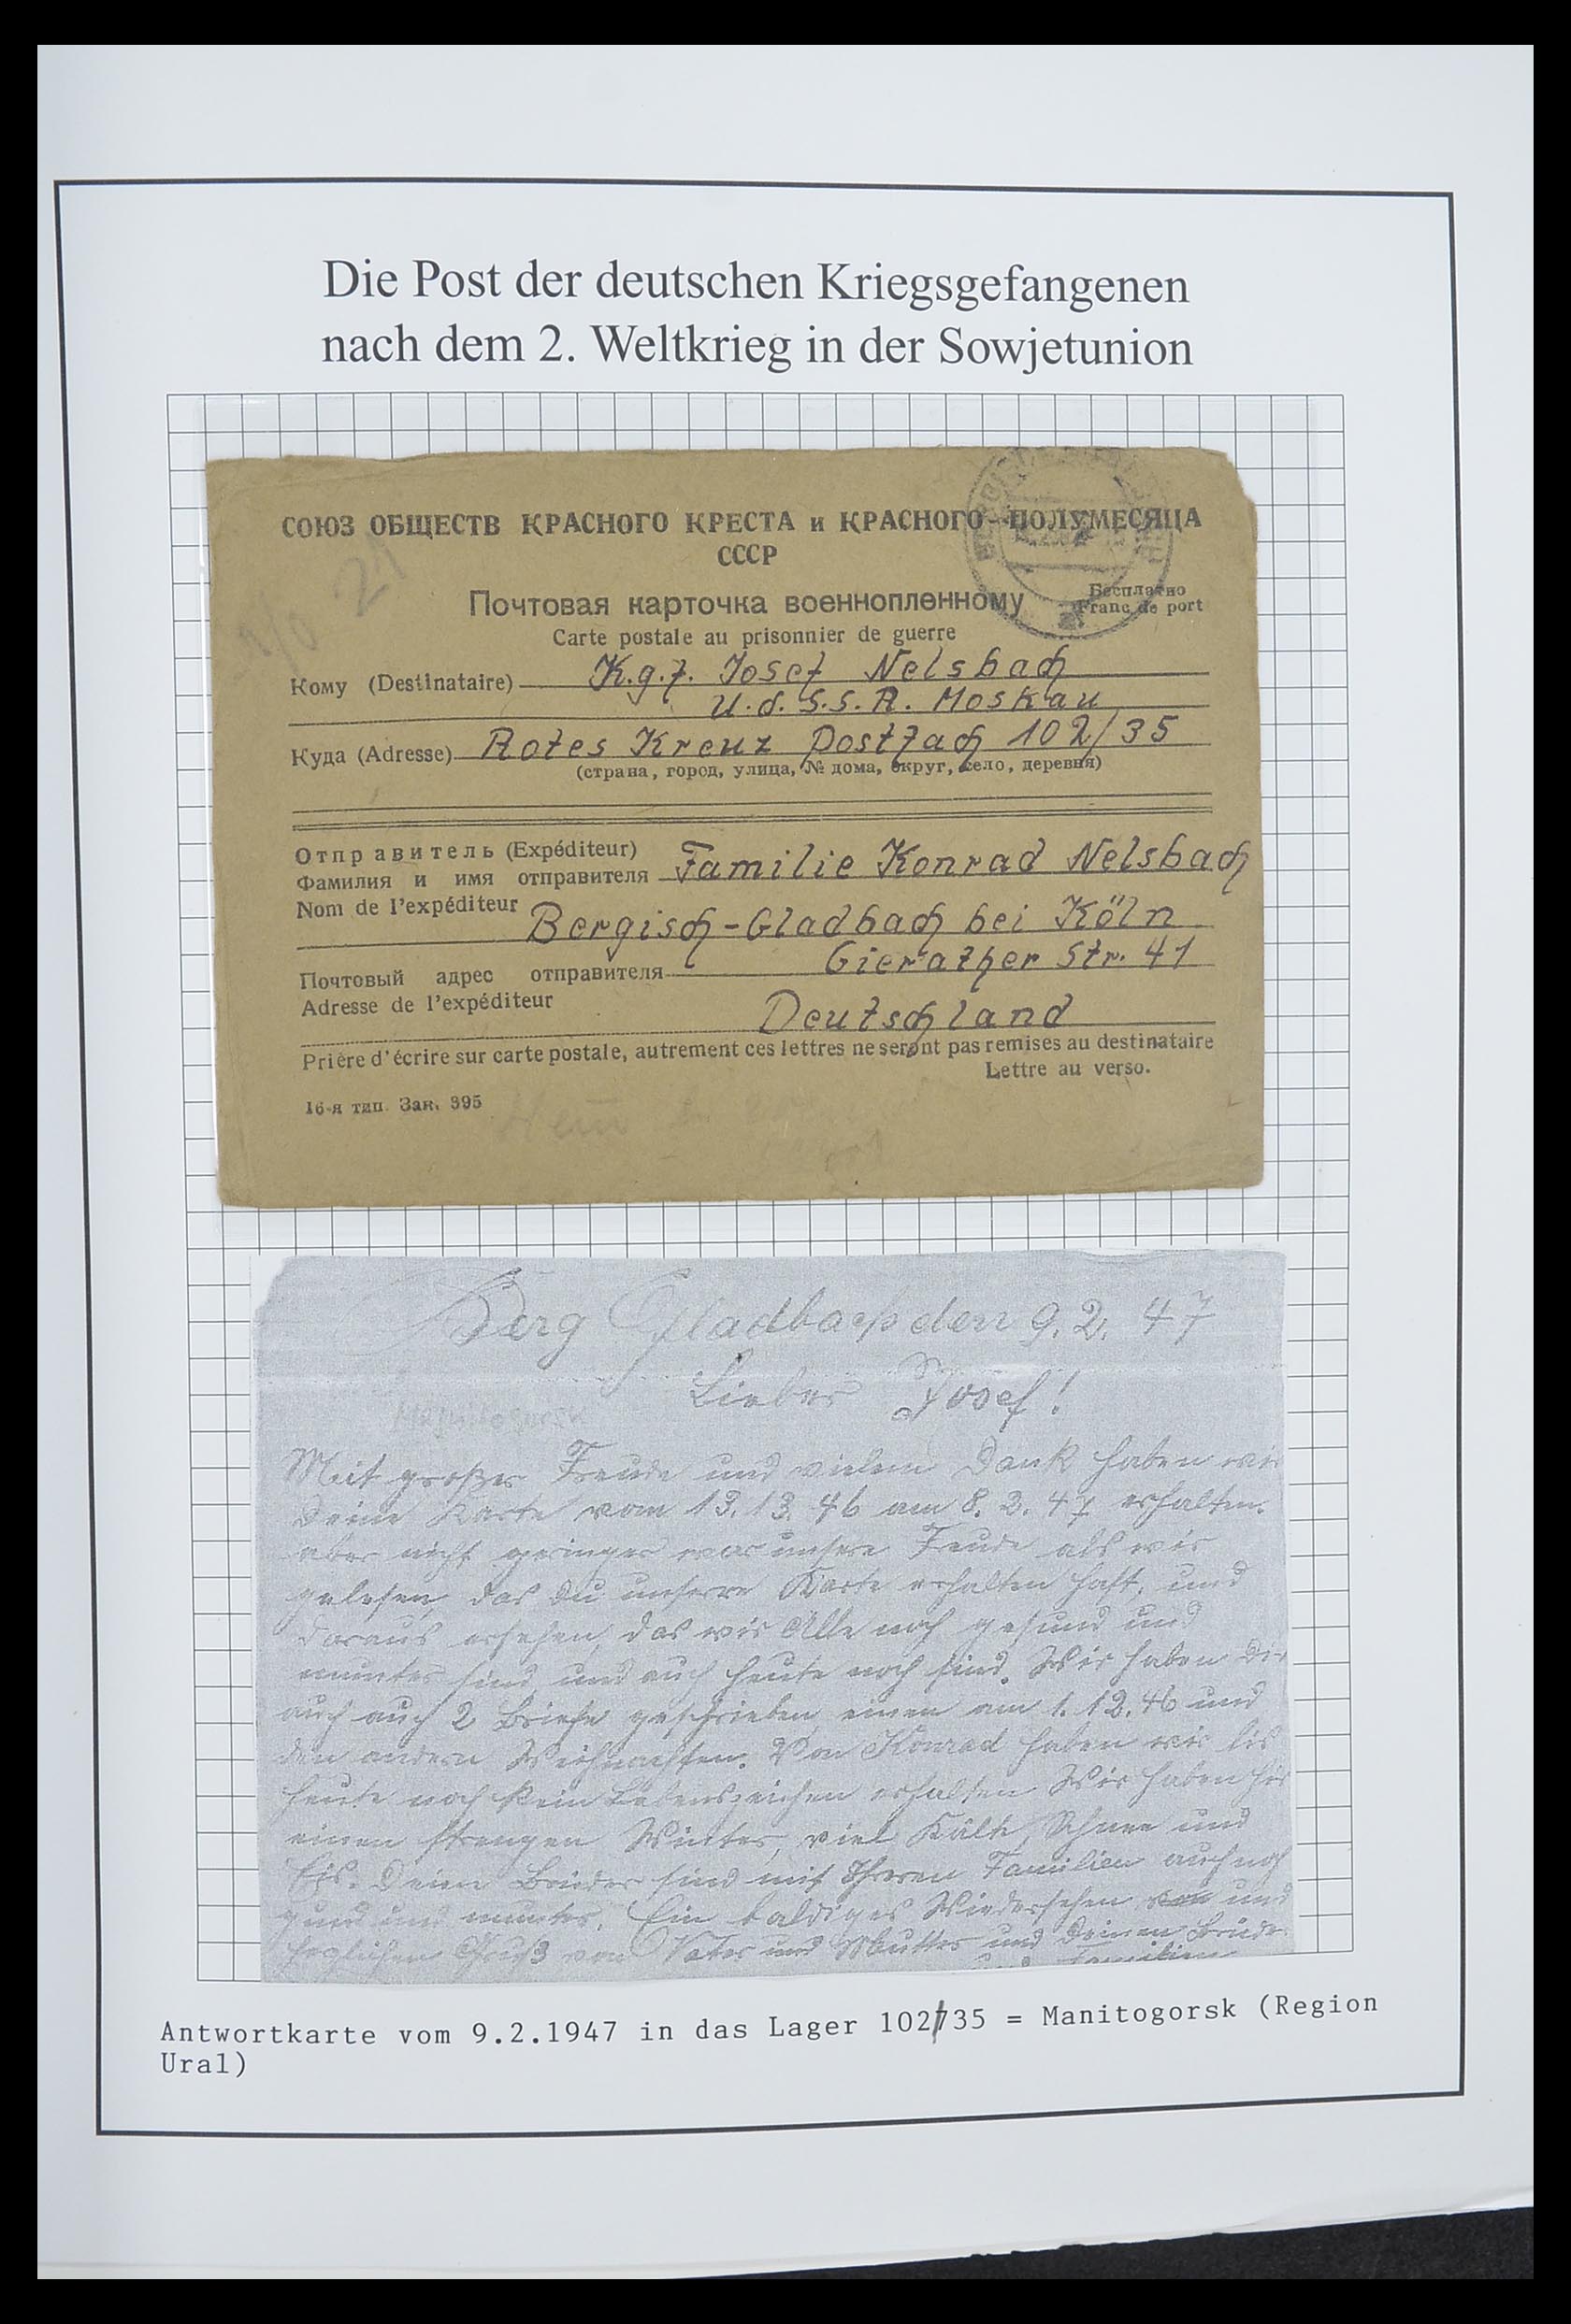 Die Post der deutschen Kriegsgefangenen
nach dem 2. Weltkrieg in der Sowjetunion
СОЮЗ ОБЩЕСТВ КРАСНОГО КРЕСТА и КРАСНОГО-ПОЛУМЕСЯЦА
СССР
Почтовая карточка военнопленному
Бесплатно
Franc de port
Carte postale au prisonnier de guerre
Кому (Destinataire) K.g.f. Josef Nelsbach
U.d.S.S.R. Moskau
Куда (Adresse) Rotes Kreuz Postfach 102/35
(страна, город, улица, № дома, округ, село, деревня)
Отправитель (Expéditeur)
Фамилия и имя отправителя Familie Konrad Nelsbach
Nom de l'expéditeur
Bergisch-Gladbach bei Köln
Gierather Str. 41
Почтовый адрес отправителя
Adresse de l'expéditeur
Deutschland
Prière d'écrire sur carte postale, autrement ces lettres ne seront pas remises au destinataire
Lettre au verso.
16-я тип. Зак. 395
Berg Gladbach den 9.2.47
Lieber Josef!
Magnitogorsk
Mit großer Freude und vielem Dank haben wir
Deine Karte vom 13.12.46 am 8.2.47 erhalten.
aber nicht geringer war unsere Freude als wir
gelesen, das Du unsere Karte erhalten hast, und
daraus ersehen, das wir Alle noch gesund und
munter sind, und auch heute noch sind. Wir haben Dir
auch auch 2 Briefe geschrieben, einen am 1.12.46 und
den andern Weihnachten. Von Konrad haben wir bis
heute noch kein Lebenszeichen erhalten Wir haben hir
einen strengen Winter, viel Kälte, Schnee und
Eis. Deine Brüder sind mit Ihren Familien auch noch
und munter. Ein baldiges Wiedersehen und
Gruß von Vater und Mutter und Deinen Brüder
und Familien
Antwortkarte vom 9.2.1947 in das Lager 102/35 = Manitogorsk (Region
Ural)